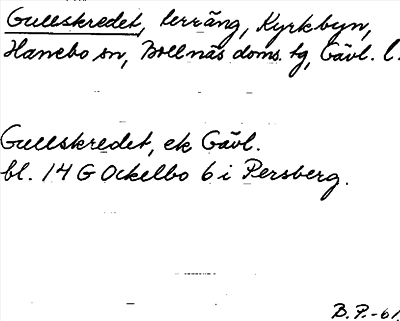 Gullskredet, terräng, Kyrkbyn,
Hanebo sn, Bollnäs doms. tg, Gävl. l.
Gullskredet, ek Gävl.
bl. 14 G Ockelbo 6 i Persberg.
B.P.-61.